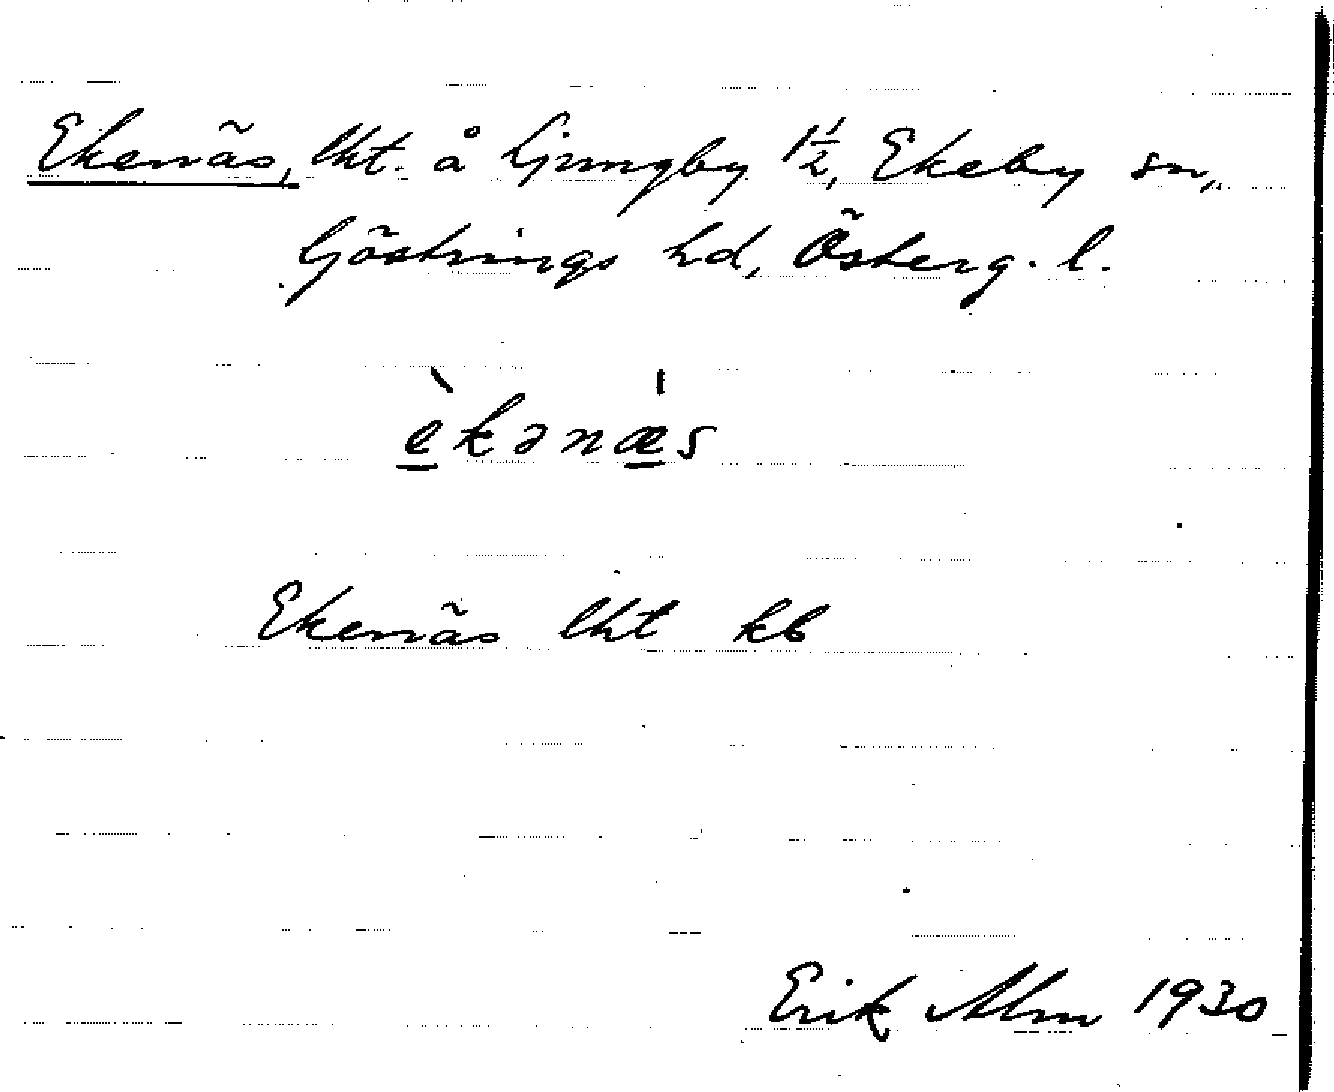 Ekenäs, lht. å Ljungby 1 1/2, Ekeby sn,
Göstrings hd, Österg. l.
èkənæs
Ekenäs lht kb
Erik Alm 1930